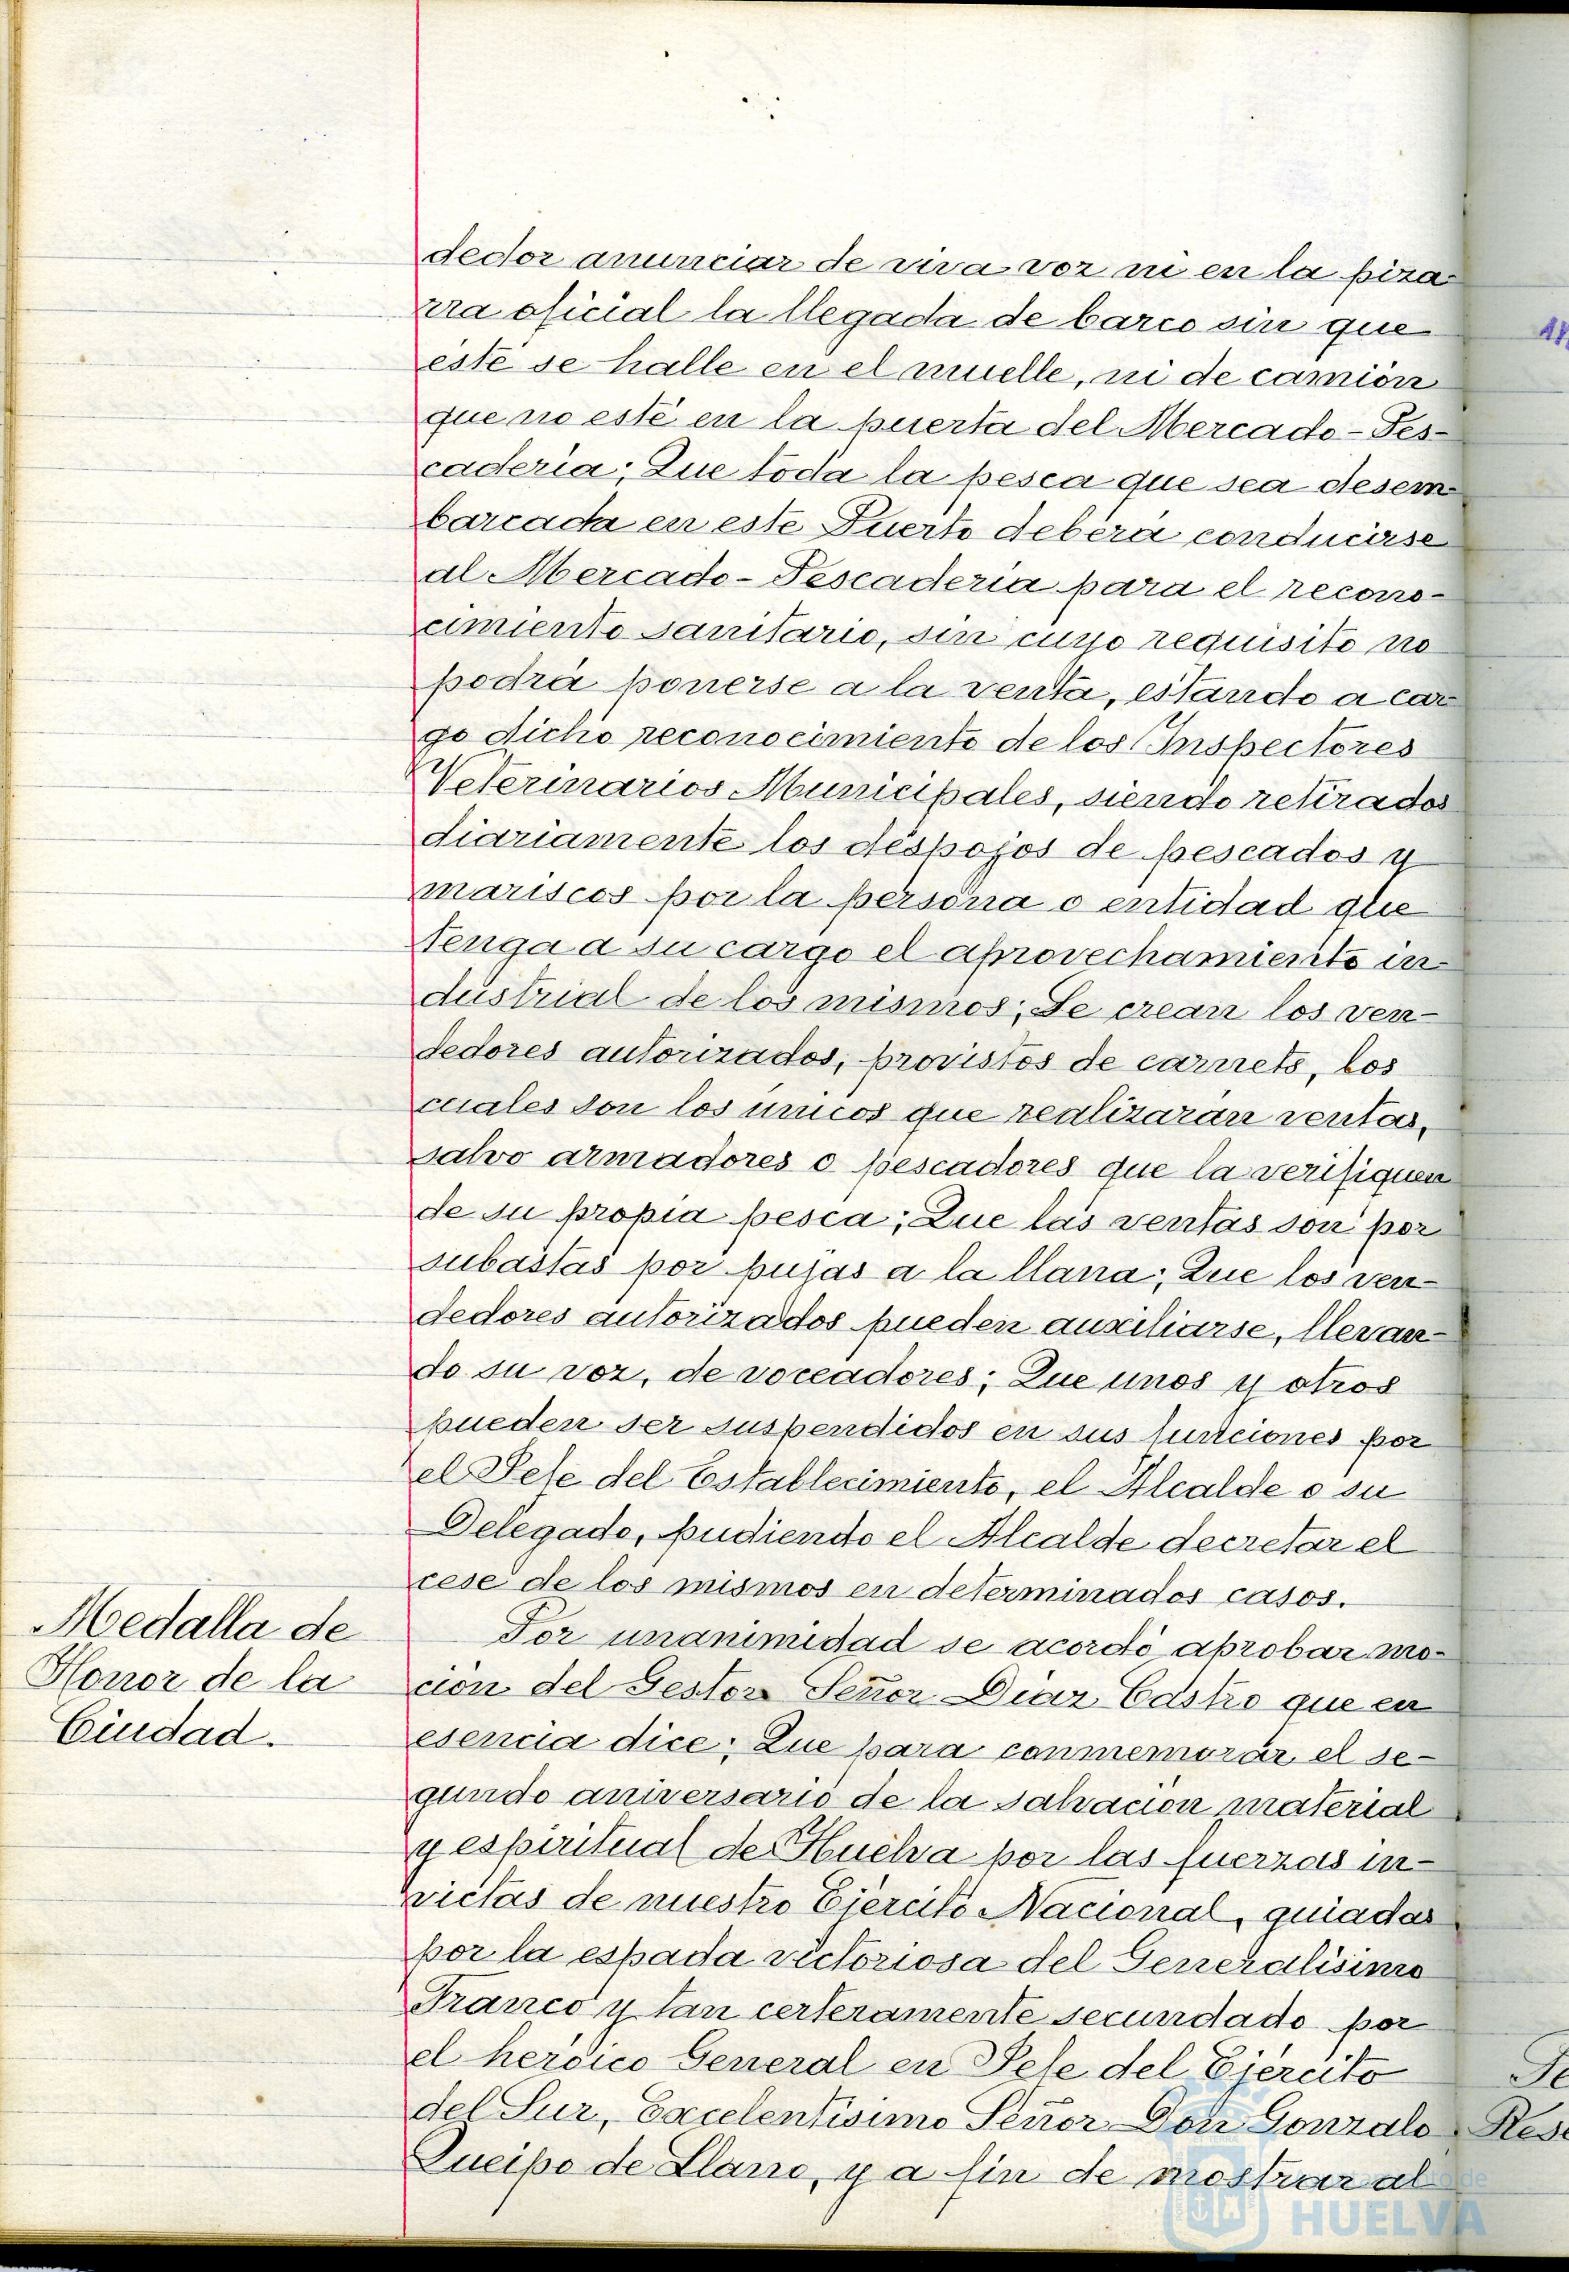 dedor anunciar de viva voz ni en la piza-
rra oficial la llegada de barco sin que
éste se halle en el muelle, ni de camión
que no esté en la puerta del Mercado-Pes-
cadería; Que toda la pesca que sea desem-
barcada en este Puerto deberá conducirse
al Mercado-Pescadería para el recono-
cimiento sanitario, sin cuyo requisito no
podrá ponerse a la venta, estando a car-
go dicho reconocimiento de los Inspectores
Veterinarios Municipales, siendo retirados
diariamente los despojos de pescados y
mariscos por la persona o entidad que
tenga a su cargo el aprovechamiento in-
dustrial de los mismos; Se crean los ven-
dedores autorizados, provistos de carnets, los
cuales son los únicos que realizarán ventas,
salvo armadores o pescadores que la verifiquen
de su propia pesca; Que las ventas son por
subastas por pujas a la llana; Que los ven-
dedores autorizados pueden auxiliarse, llevan-
do su voz, de voceadores; Que unos y otros
pueden ser suspendidos en sus funciones por
el Jefe del Establecimiento, el Alcalde o su
Delegado, pudiendo el Alcalde decretar el
cese de los mismos en determinados casos.
Medalla de
Honor de la
Ciudad.
Por unanimidad se acordó aprobar mo-
ción del Gestor Señor Díaz Castro que en
esencia dice: Que para conmemorar el se-
gundo aniversario de la salvación material
y espiritual de Huelva por las fuerzas in-
victas de nuestro Ejército Nacional, guiadas
por la espada victoriosa del Generalísimo
Franco y tan certeramente secundado por
el heróico General en Jefe del Ejército
del Sur, Excelentísimo Señor Don Gonzalo
Queipo de Llano, y a fin de mostrar al
HUELVA